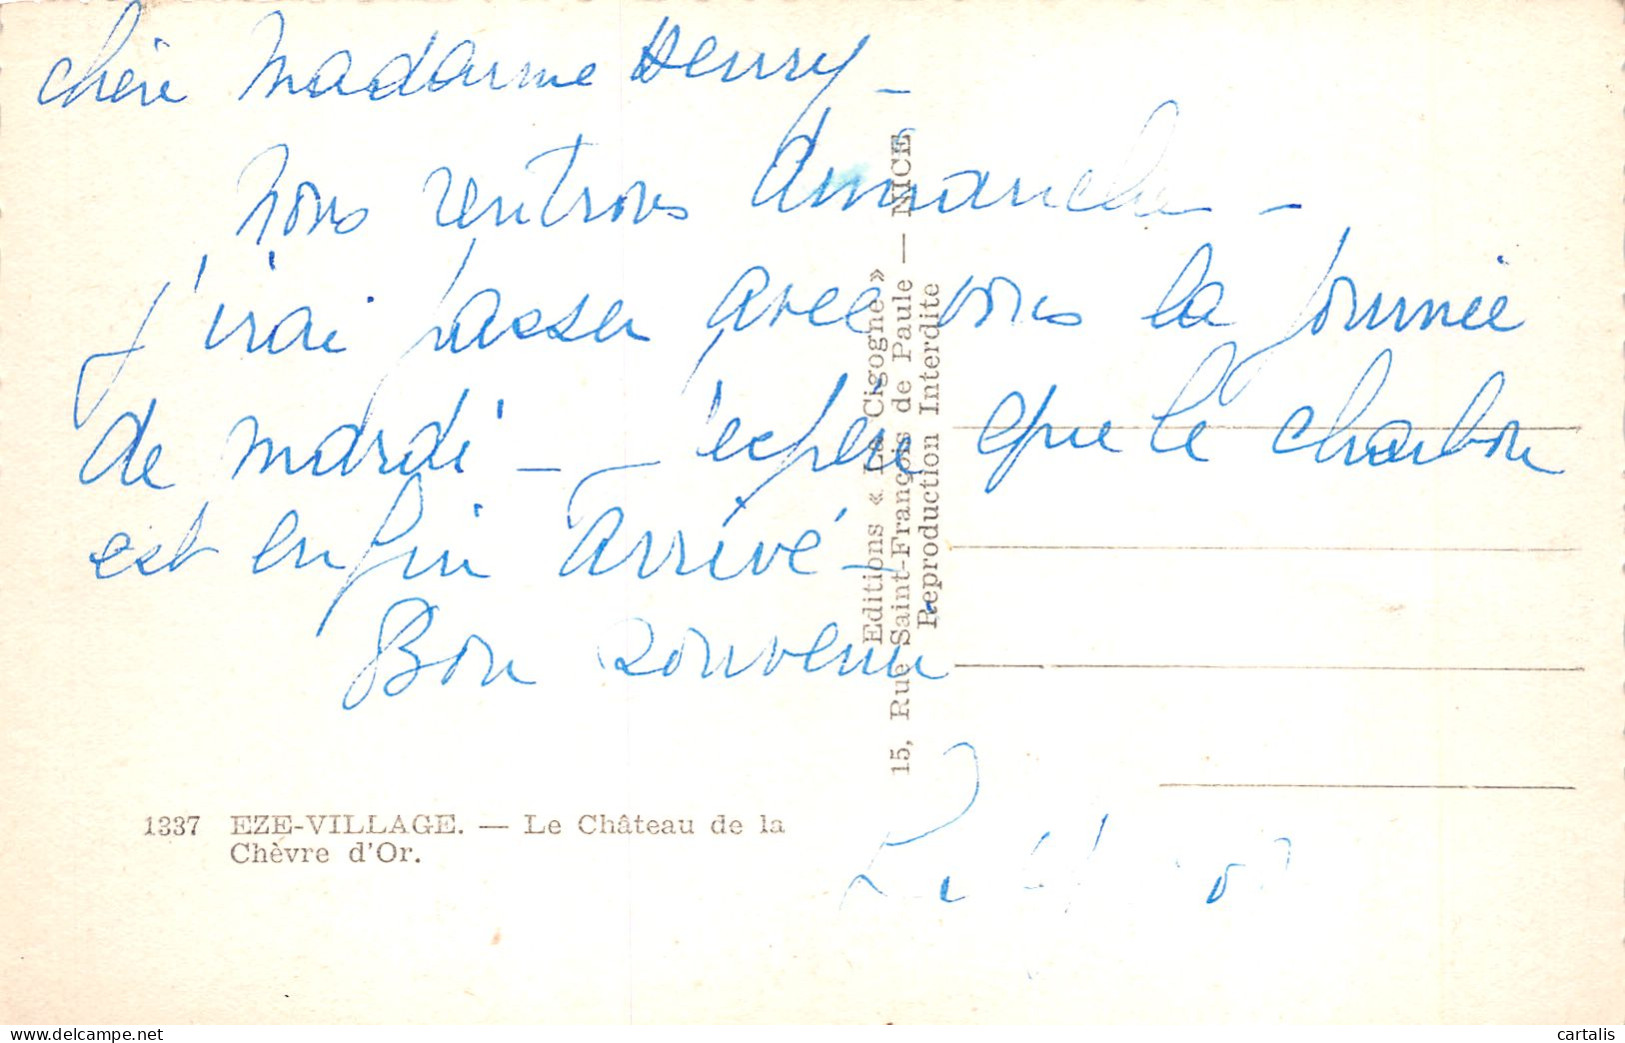 chère Madame Henry -
Nous rentrons dimanche -
j'irai passer avec vous la journée
de mardi - j'espère que le charbon
est enfin arrivé -
Bon souvenir
Editions « La Cigogne »
15, Rue Saint-François de Paule — NICE
Reproduction Interdite
1337 EZE-VILLAGE. — Le Château de la
Chèvre d'Or.
cartalis